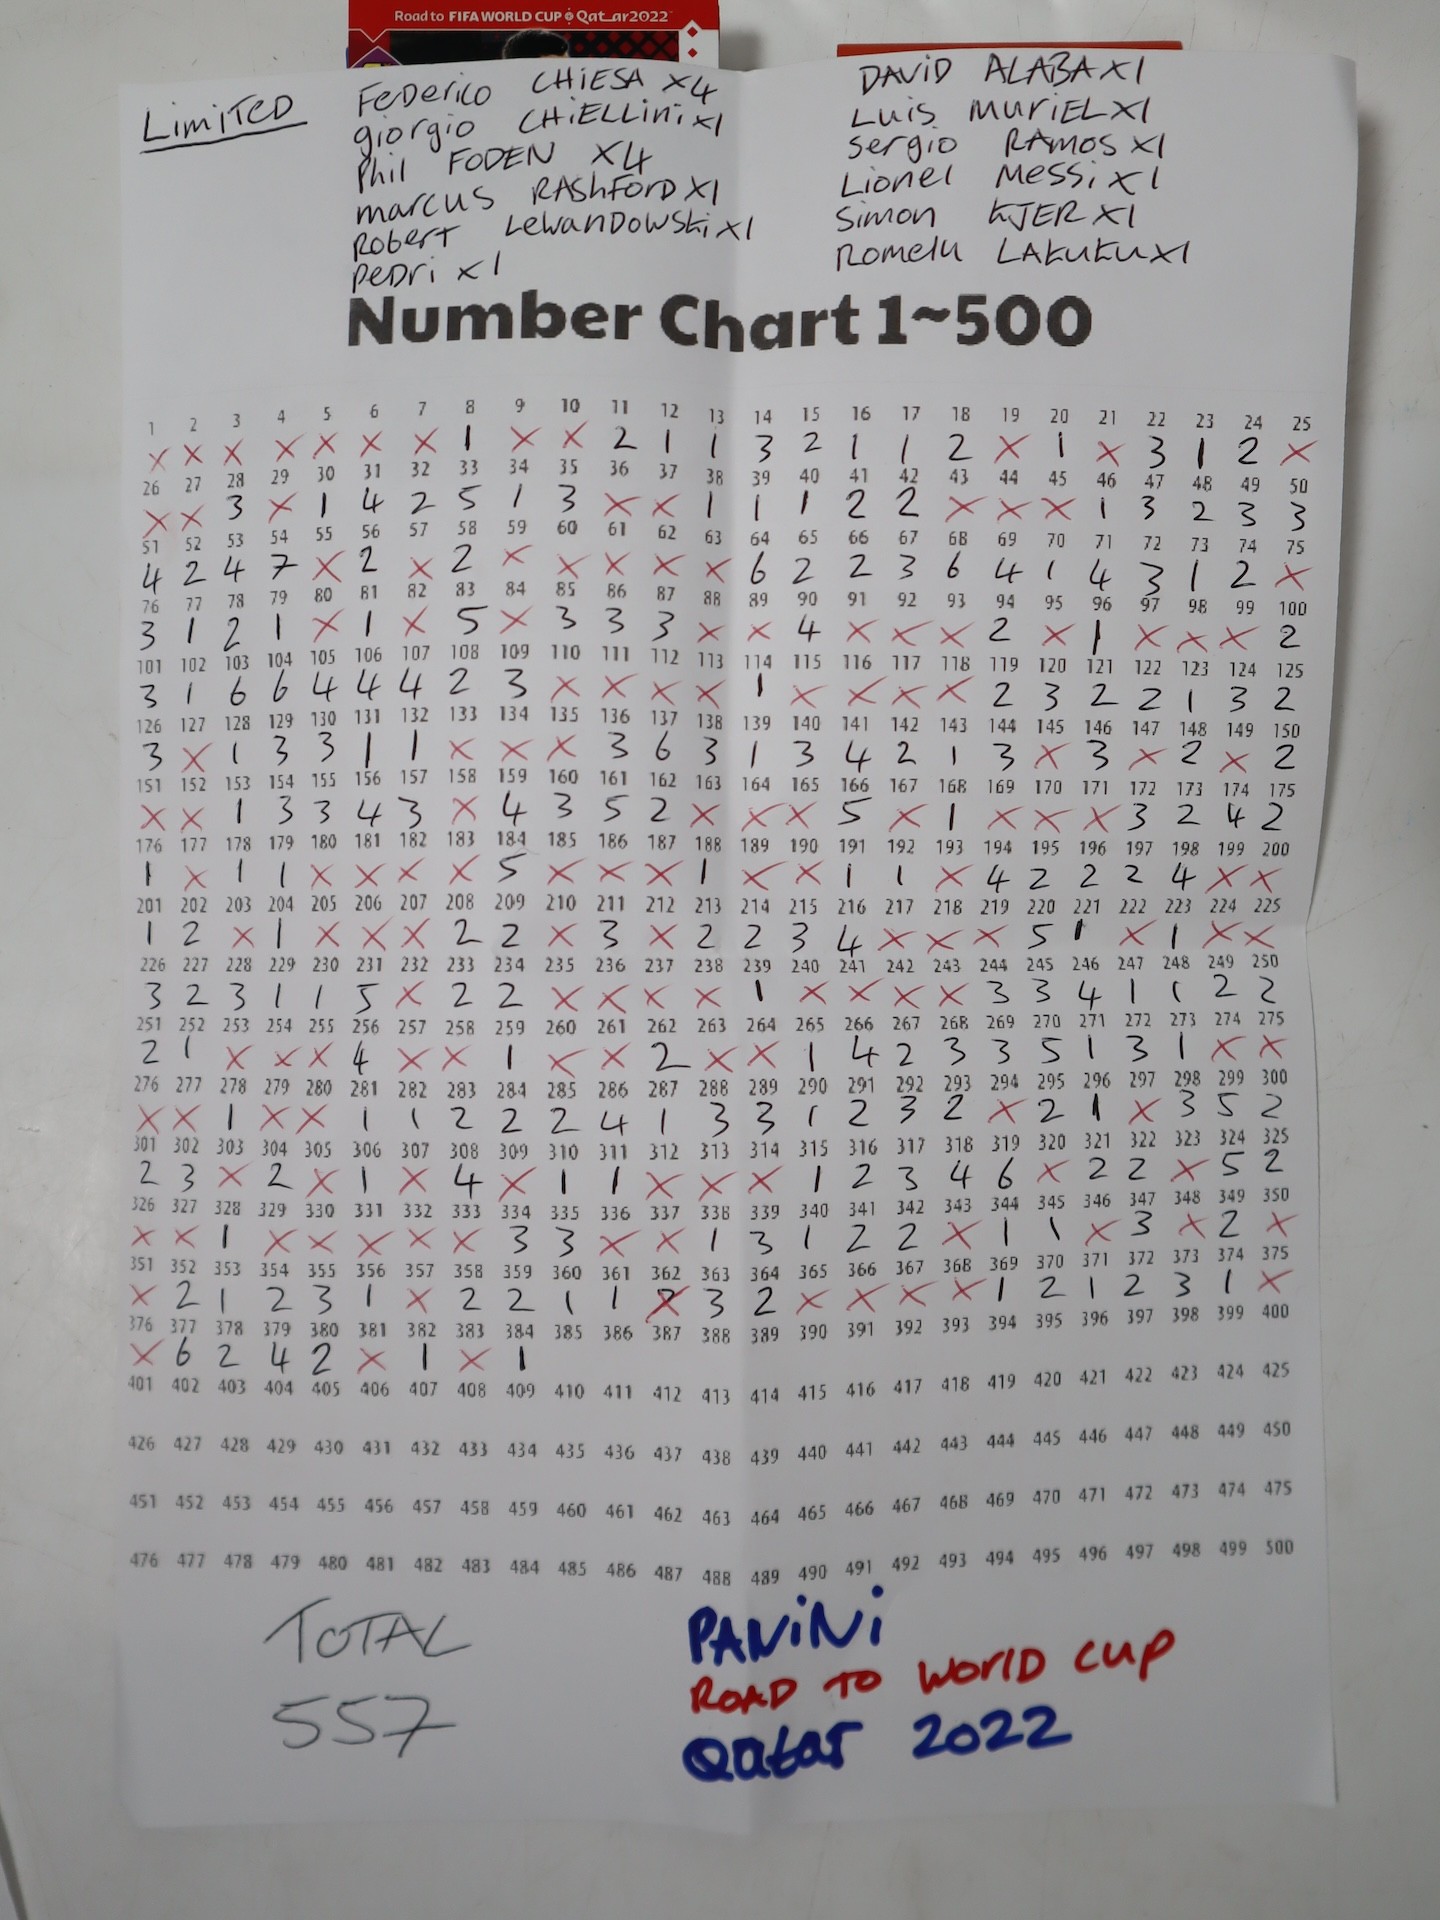 Road to FIFA WORLD CUP Qatar2022
LIMITED
FEDerico CHIESA X4
giorgio CHiELLini X1
Phil FODEN X4
marcus RAShFORD X1
Robert LewanDowski X1
PeDri X1
DAViD ALABA X1
Luis MuriEL X1
Sergio RAmos X1
Lionel Messi X1
Simon KJER X1
Romelu LAKUKU X1
Number Chart 1~500
1 2 3 4 5 6 7 8 9 10 11 12 13 14 15 16 17 18 19 20 21 22 23 24 25
X X X X X X X 1 X X 2 1 1 3 2 1 1 2 X 1 X 3 1 2 X
26 27 28 29 30 31 32 33 34 35 36 37 38 39 40 41 42 43 44 45 46 47 48 49 50
X X 3 X 1 4 2 5 1 3 X X 1 1 1 2 2 X X X 1 3 2 3 3
51 52 53 54 55 56 57 58 59 60 61 62 63 64 65 66 67 68 69 70 71 72 73 74 75
4 2 4 7 X 2 X 2 X X X X X 6 2 2 3 6 4 1 4 3 1 2 X
76 77 78 79 80 81 82 83 84 85 86 87 88 89 90 91 92 93 94 95 96 97 98 99 100
3 1 2 1 X 1 X 5 X 3 3 3 X X 4 X X X 2 X 1 X X X 2
101 102 103 104 105 106 107 108 109 110 111 112 113 114 115 116 117 118 119 120 121 122 123 124 125
3 1 6 6 4 4 4 2 3 X X X X 1 X X X X 2 3 2 2 1 3 2
126 127 128 129 130 131 132 133 134 135 136 137 138 139 140 141 142 143 144 145 146 147 148 149 150
3 X 1 3 3 1 1 X X X 3 6 3 1 3 4 2 1 3 X 3 X 2 X 2
151 152 153 154 155 156 157 158 159 160 161 162 163 164 165 166 167 168 169 170 171 172 173 174 175
X X 1 3 3 4 3 X 4 3 5 2 X X X 5 X 1 X X X 3 2 4 2
176 177 178 179 180 181 182 183 184 185 186 187 188 189 190 191 192 193 194 195 196 197 198 199 200
1 X 1 1 X X X X 5 X X X 1 X X 1 1 X 4 2 2 2 4 X X
201 202 203 204 205 206 207 208 209 210 211 212 213 214 215 216 217 218 219 220 221 222 223 224 225
1 2 X 1 X X X 2 2 X 3 X 2 2 3 4 X X X 5 1 X 1 X X
226 227 228 229 230 231 232 233 234 235 236 237 238 239 240 241 242 243 244 245 246 247 248 249 250
3 2 3 1 1 5 X 2 2 X X X X 1 X X X X 3 3 4 1 1 2 2
251 252 253 254 255 256 257 258 259 260 261 262 263 264 265 266 267 268 269 270 271 272 273 274 275
2 1 X X X 4 X X 1 X X 2 X X 1 4 2 3 3 5 1 3 1 X X
276 277 278 279 280 281 282 283 284 285 286 287 288 289 290 291 292 293 294 295 296 297 298 299 300
X X 1 X X 1 1 2 2 2 4 1 3 3 1 2 3 2 X 2 1 X 3 5 2
301 302 303 304 305 306 307 308 309 310 311 312 313 314 315 316 317 318 319 320 321 322 323 324 325
2 3 X 2 X 1 X 4 X 1 1 X X X 1 2 3 4 6 X 2 2 X 5 2
326 327 328 329 330 331 332 333 334 335 336 337 338 339 340 341 342 343 344 345 346 347 348 349 350
X X 1 X X X X X 3 3 X X 1 3 1 2 2 X 1 1 X 3 X 2 X
351 352 353 354 355 356 357 358 359 360 361 362 363 364 365 366 367 368 369 370 371 372 373 374 375
X 2 1 2 3 1 X 2 2 1 1 X 3 2 X X X X 1 2 1 2 3 1 X
376 377 378 379 380 381 382 383 384 385 386 387 388 389 390 391 392 393 394 395 396 397 398 399 400
X 6 2 4 2 X 1 X 1
401 402 403 404 405 406 407 408 409 410 411 412 413 414 415 416 417 418 419 420 421 422 423 424 425
426 427 428 429 430 431 432 433 434 435 436 437 438 439 440 441 442 443 444 445 446 447 448 449 450
451 452 453 454 455 456 457 458 459 460 461 462 463 464 465 466 467 468 469 470 471 472 473 474 475
476 477 478 479 480 481 482 483 484 485 486 487 488 489 490 491 492 493 494 495 496 497 498 499 500
TOTAL
557
PANiNi
ROAD TO WORLD CUP
Qatar 2022